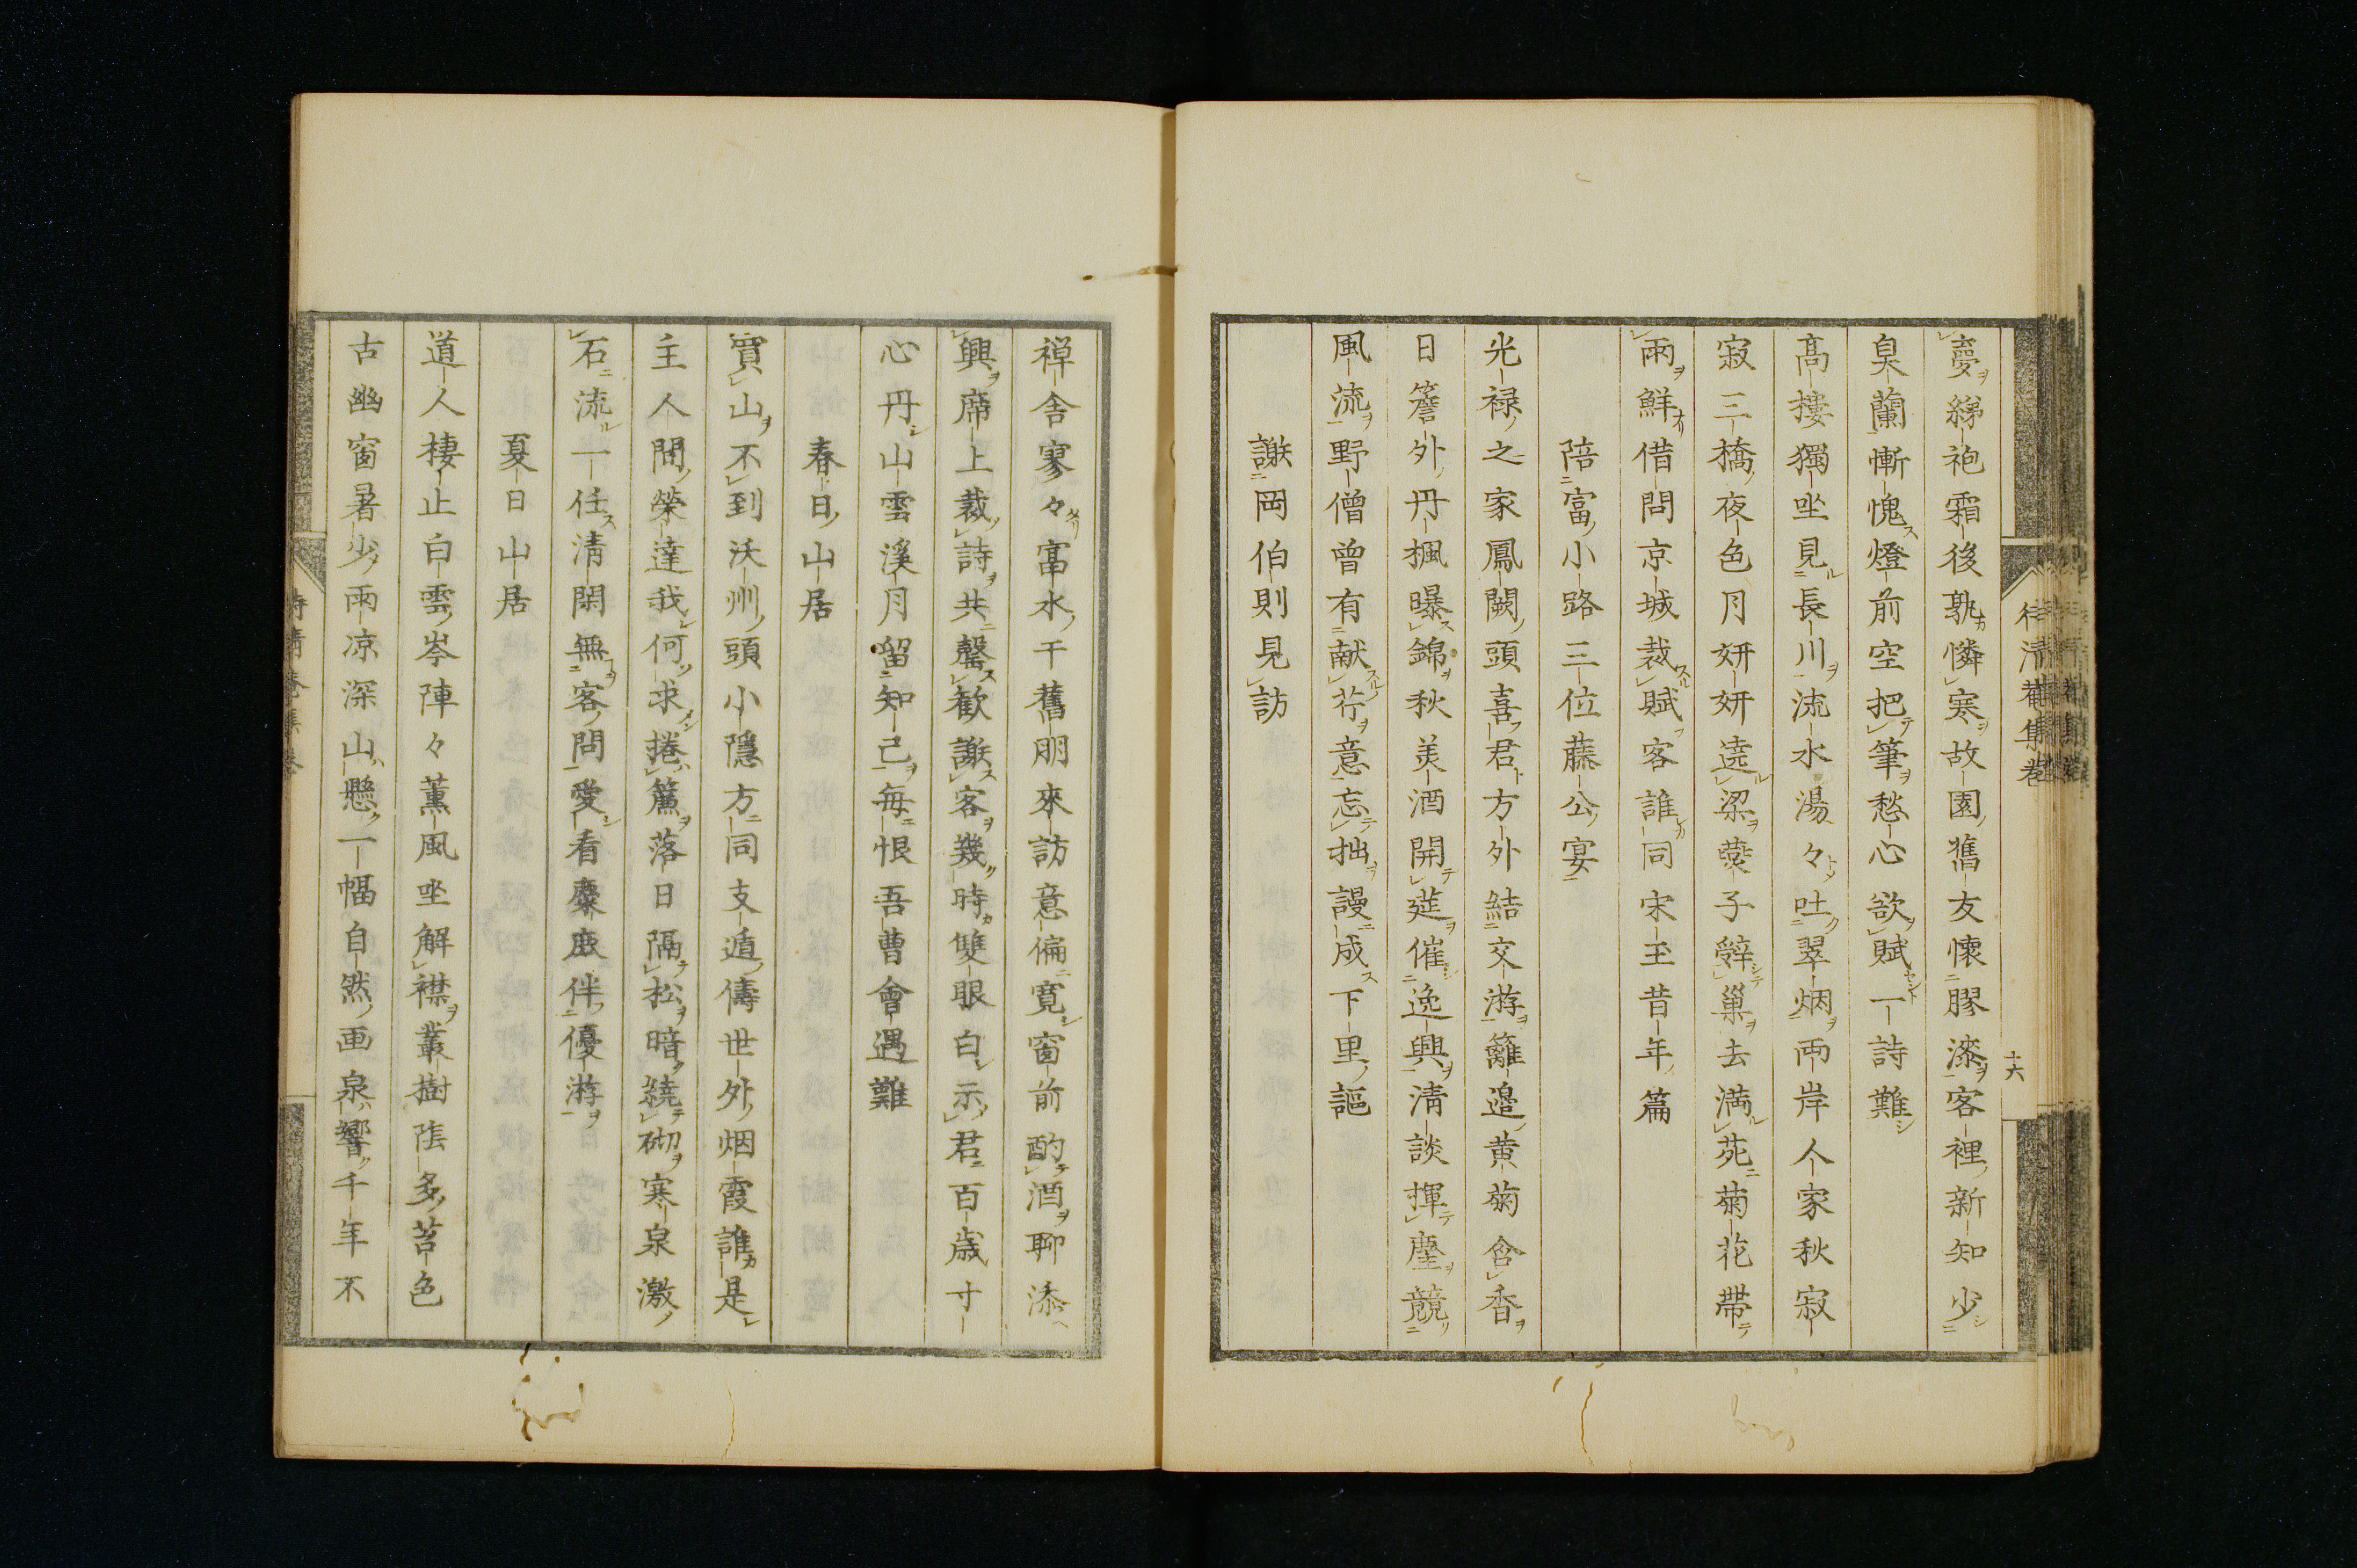 夢綈袍霜後孰憐寒故園舊友懷膠漆客裡新知少
臭蘭慚愧燈前空把筆愁心欲賦一詩難
高樓獨坐見長川流水湯々吐翠烟両岸人家秋寂
寂三橋夜色月妍妍遶梁燕子辭巢去満苑菊花帶
雨鮮借問京城裁賦客誰同宋玉昔年篇
陪富小路三位藤公宴
光禄之家鳳闕頭喜君方外結交游籬邉黄菊含香
日簷外丹楓曝錦秋美酒開莚催逸興清談揮麈競
風流野僧曽有献芹意忘拙謾成下里謳
謝岡伯則見訪
禅舎寥々富水干舊朋來訪意偏寛窗前酌酒聊添
興席上裁詩共罄歓謝客幾時雙眼白示君百歳寸
心丹山雲溪月留知己毎恨吾曹會遇難
春日山居
買山不到沃州頭小隱方同支遁儔世外烟霞誰是
主人間榮達我何求捲簾落日隔松暗繞砌寒泉激
石流一任清閑無客問愛看麋鹿伴優游
夏日山居
道人棲止白雲岑陣々薫風坐解襟叢樹陰多苔色
古幽窗暑少雨凉深山懸一幅自然画泉響千年不
十六